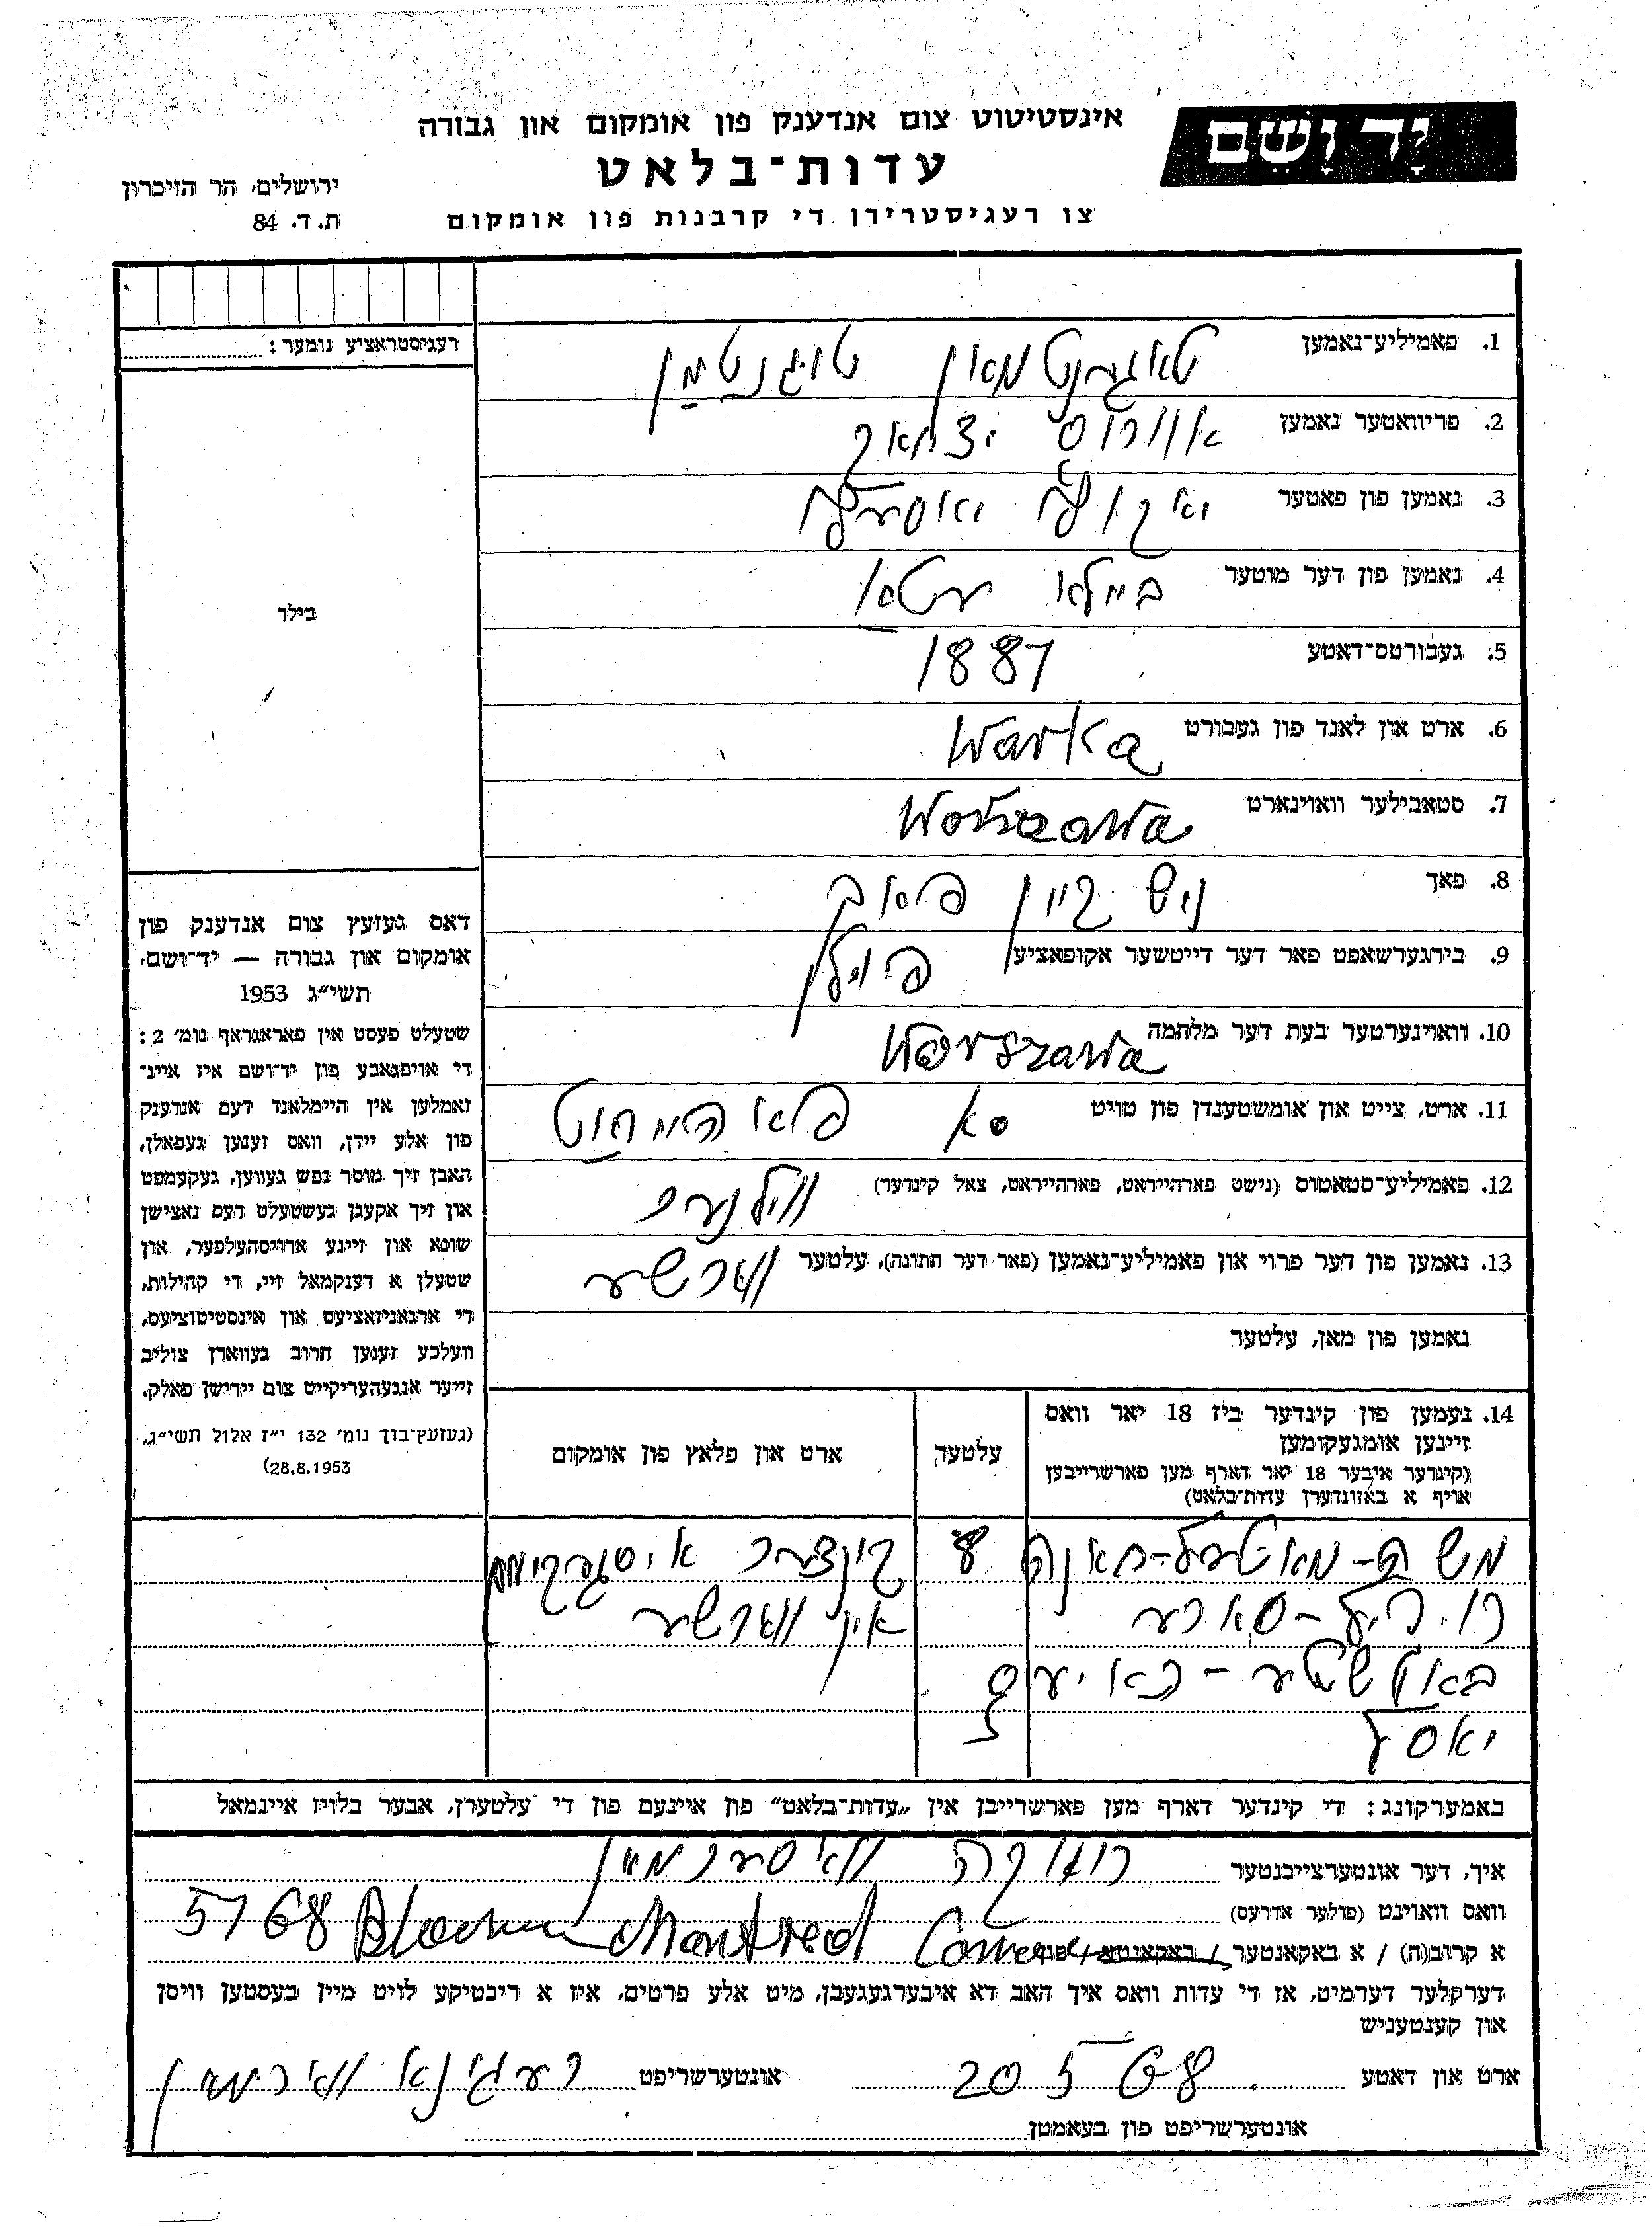 יָד וָשֵׁם
אינסטיטוט צום אנדענק פון אומקום און גבורה
עדות־בלאט
צו רעגיסטרירן די קרבנות פון אומקום
ירושלים, הר הזיכרון
ת.ד. 84
רעגיסטראציע נומער:
בילד
דאס געזעץ צום אנדענק פון
אומקום און גבורה — יד־ושם,
תשי״ג 1953
שטעלט פעסט אין פאראגראף נומ׳ 2:
די אויפגאבע פון יד־ושם איז איינ־
זאמלען אין היימלאנד דעם אנדענק
פון אלע יידן, וואס זענען געפאלן,
האבן זיך מוסר נפש געווען, געקעמפט
און זיך אקעגן געשטעלט דעם נאצישן
שונא און זיינע ארויסהעלפער, און
שטעלן א דענקמאל זיי, די קהילות,
די ארגאניזאציעס און אינסטיטוציעס,
וועלכע זענען חרוב געווארן צוליב
זייער אנגעהעריקייט צום יידישן פאלק.
(געזעץ־בוך נומ׳ 132 י״ז אלול תשי״ג,
28.8.1953)
1. פאמיליע־נאמען טאוגענטמאן טוגנטמַן
2. פריוואטער נאמען
3. נאמען פון פאטער
4. נאמען פון דער מוטער ביילא
5. געבורטס־דאטע 1887
6. ארט און לאנד פון געבורט Warka
7. סטאבילער וואוינארט Warszawa
8. פאך ניש קיין פאך
9. בירגערשאפט פאר דער דייטשער אקופאציע פוילן
10. וואוינערטער בעת דער מלחמה Warszawa
11. ארט, צייט און אומשטענדן פון טויט
12. פאמיליע־סטאטוס (נישט פארהייראט, פארהייראט, צאל קינדער)
13. נאמען פון דער פרוי און פאמיליע־נאמען (פאר דער חתונה), עלטער ווארשע
נאמען פון מאן, עלטער
14. נעמען פון קינדער ביז 18 יאר וואס
זיינען אומגעקומען
(קינדער איבער 18 יאר דארף מען פארשרייבן
אויף א באזונדערן עדות־בלאט)
עלטער
ארט און פלאץ פון אומקום
משה־מאטעל־חאנה 8 קינדער
־סארע אין ווארשע
9
באמערקונג: די קינדער דארף מען פארשרייבן אין „עדות־בלאט״ פון איינעם פון די עלטערן, אבער בלויז איינמאל
איך, דער אונטערצייכנטער
וואס וואוינט (פולער אדרעס)
א קרוב(ה) / א באקאנטער / באקאנטע / פון 5768 Montreal
דערקלער דערמיט, אז די עדות וואס איך האב דא איבערגעגעבן, מיט אלע פרטים, איז א ריכטיקע לויט מיין בעסטען וויסן
און קענטעניש
ארט און דאטע 20 5 68 אונטערשריפט רעגינא
אונטערשריפט פון בעאמטן